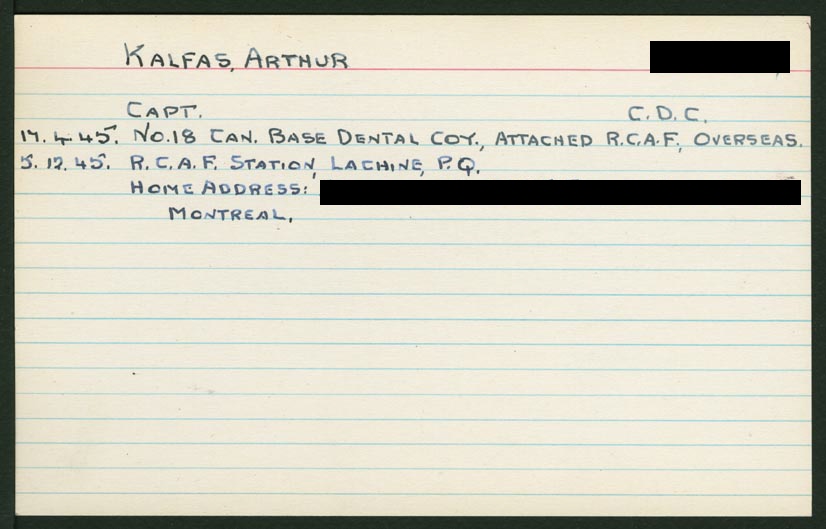 KALFAS, ARTHUR
CAPT. C.D.C.
17.4.45. NO.18 CAN. BASE DENTAL COY., ATTACHED R.C.A.F., OVERSEAS.
5.12.45. R.C.A.F. STATION, LACHINE, P.Q.
HOME ADDRESS:
MONTREAL,